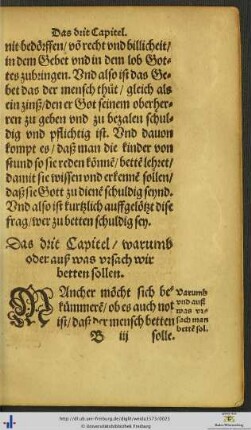 Das drit Capitel.
nit bedörffen/ vō recht vnd billicheit/
in dem Gebet vnd in dem lob Got-
tes zubringen. Vnd also ist das Ge-
bet das der mensch thüt/ gleich als
ein zinß/ den er Got seinem oberher-
ren zu geben vnd zu bezalen schul-
dig vnd pflichtig ist. Vnd dauon
kompt es/ daß man die kinder von
stund so sie reden könnē/ bettē lehret/
damit sie wissen vnd erkennē sollen/
daß sie Gott zu dienē schuldig seynd.
Vnd also ist kurtzlich auffgelötzt dise
frag/ wer zu betten schuldig sey.
Das drit Capitel/ warumb
oder auß was vrsach wir
betten sollen.
MAncher möcht sich be
kümmerē/ ob es auch not
ist/ daß der mensch betten
Warumb
vnd auß
was vr-
sach man
bettē sol.
B iij solle.
http://dl.ub.uni-freiburg.de/diglit/weida1573/0021
© Universitätsbibliothek Freiburg